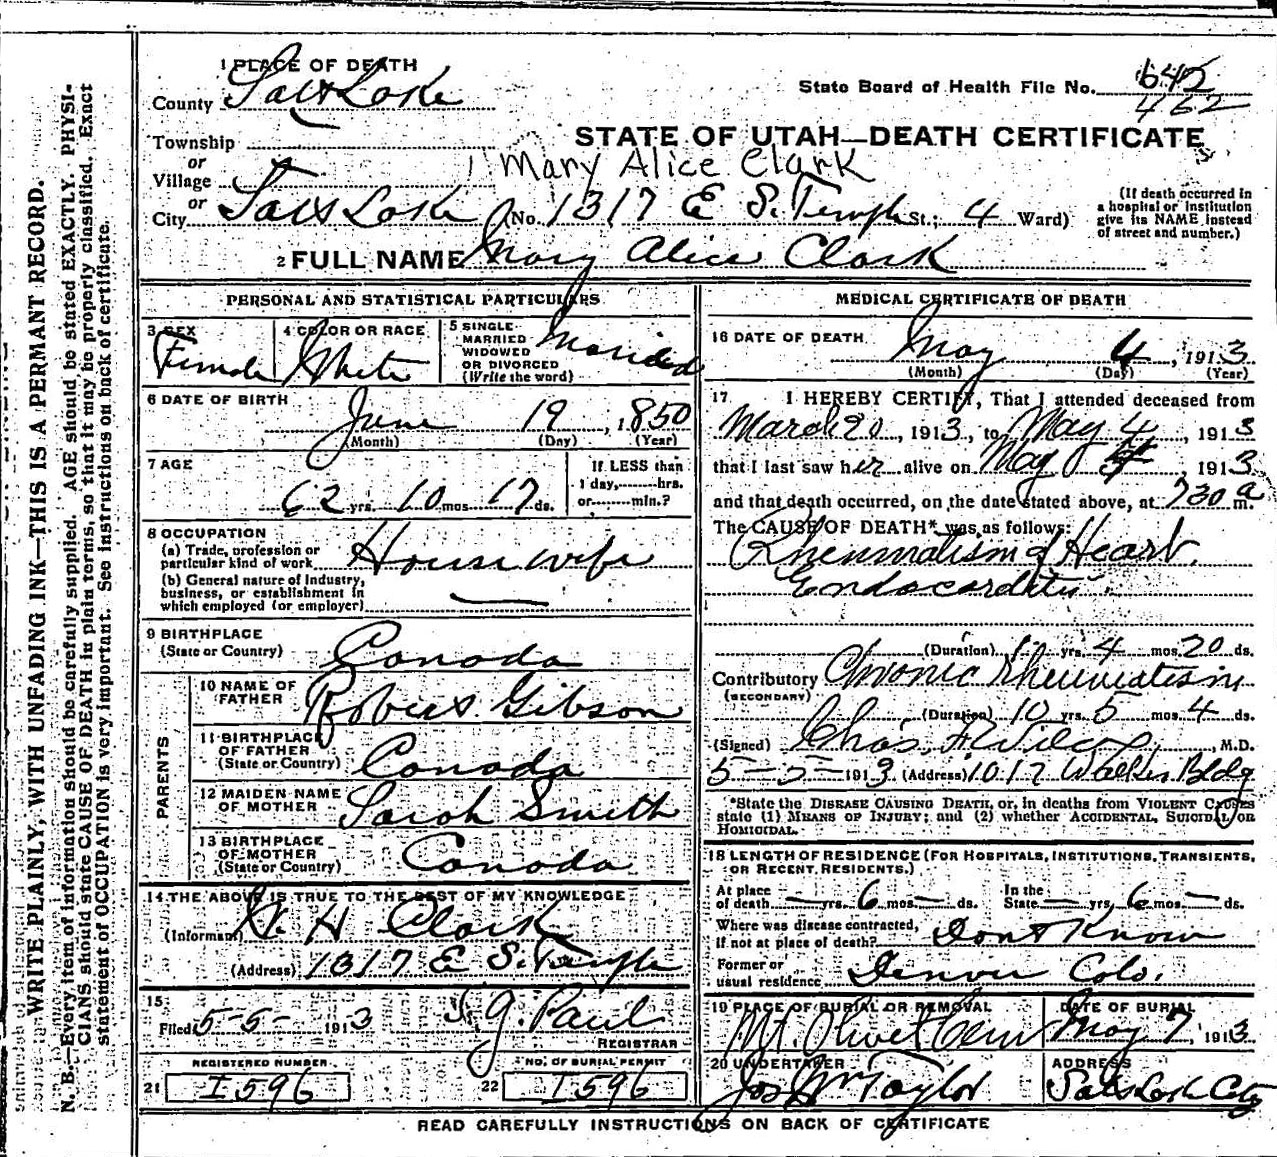 1 PLACE OF DEATH
County Salt Lake
State Board of Health File No. 642
462
Township
or
Village
or
STATE OF UTAH—DEATH CERTIFICATE
Mary Alice Clark
City Salt Lake (No. 1317 E S. Temple St.; 4 Ward)
(If death occurred in
a hospital or institution
give its NAME instead
of street and number.)
2 FULL NAME Mary Alice Clark
PERSONAL AND STATISTICAL PARTICULARS
3 SEX Female
4 COLOR OR RACE White
5 SINGLE
MARRIED
WIDOWED
OR DIVORCED
(Write the word) Married
6 DATE OF BIRTH
June 19, 1850
(Month) (Day) (Year)
7 AGE
62 yrs. 10 mos. 17 ds.
If LESS than
1 day, hrs.
or min.?
8 OCCUPATION
(a) Trade, profession or
particular kind of work House wife
(b) General nature of Industry,
business, or establishment in
which employed (or employer)
9 BIRTHPLACE
(State or Country) Canada
PARENTS
10 NAME OF
FATHER Robert Gibson
11 BIRTHPLACE
OF FATHER
(State or Country) Canada
12 MAIDEN NAME
OF MOTHER Sarah Smith
13 BIRTHPLACE
OF MOTHER
(State or Country) Canada
14 THE ABOVE IS TRUE TO THE BEST OF MY KNOWLEDGE
(Informant) H Clark
(Address) 1317 E S. Temple
15
Filed 5-5- 1913 G. Paul
REGISTRAR
REGISTERED NUMBER
21 I596
NO. OF BURIAL PERMIT
22 I596
MEDICAL CERTIFICATE OF DEATH
16 DATE OF DEATH
May 4, 1913
(Month) (Day) (Year)
17 I HEREBY CERTIFY, That I attended deceased from
March 20, 1913, to May 4, 1913
that I last saw her alive on May, 1913
and that death occurred, on the date stated above, at 730 a m.
The CAUSE OF DEATH* was as follows:
Rheumatism of Heart
Endocarditis
(Duration) yrs. 4 mos. 20 ds.
Contributory Chronic Rheumatism
(SECONDARY)
(Duration) 10 yrs. 5 mos. 4 ds.
(Signed) Chas. F. Wilcox, M.D.
5-5- 1913 (Address) 1017 Walker Bldg
*State the DISEASE CAUSING DEATH, or, in deaths from VIOLENT CAUSES
state (1) MEANS OF INJURY; and (2) whether ACCIDENTAL, SUICIDAL, OR
HOMICIDAL.
18 LENGTH OF RESIDENCE (FOR HOSPITALS, INSTITUTIONS, TRANSIENTS,
OR RECENT RESIDENTS.)
At place
of death — yrs. 6 mos. — ds.
In the
State — yrs. 6 mos. — ds.
Where was disease contracted,
if not at place of death? Dont Know
Former or
usual residence Denver Colo.
19 PLACE OF BURIAL OR REMOVAL
Mt. Olivet Cem
DATE OF BURIAL
May 7, 1913
20 UNDERTAKER
Jos Wm Taylor
ADDRESS
Salt Lake City
READ CAREFULLY INSTRUCTIONS ON BACK OF CERTIFICATE
WRITE PLAINLY, WITH UNFADING INK—THIS IS A PERMANT RECORD.
N. B.—Every item of information should be carefully supplied. AGE should be stated EXACTLY. PHYSI-
CIANS should state CAUSE OF DEATH in plain terms, so that it may be properly classified. Exact
statement of OCCUPATION is very important. See instructions on back of certificate.